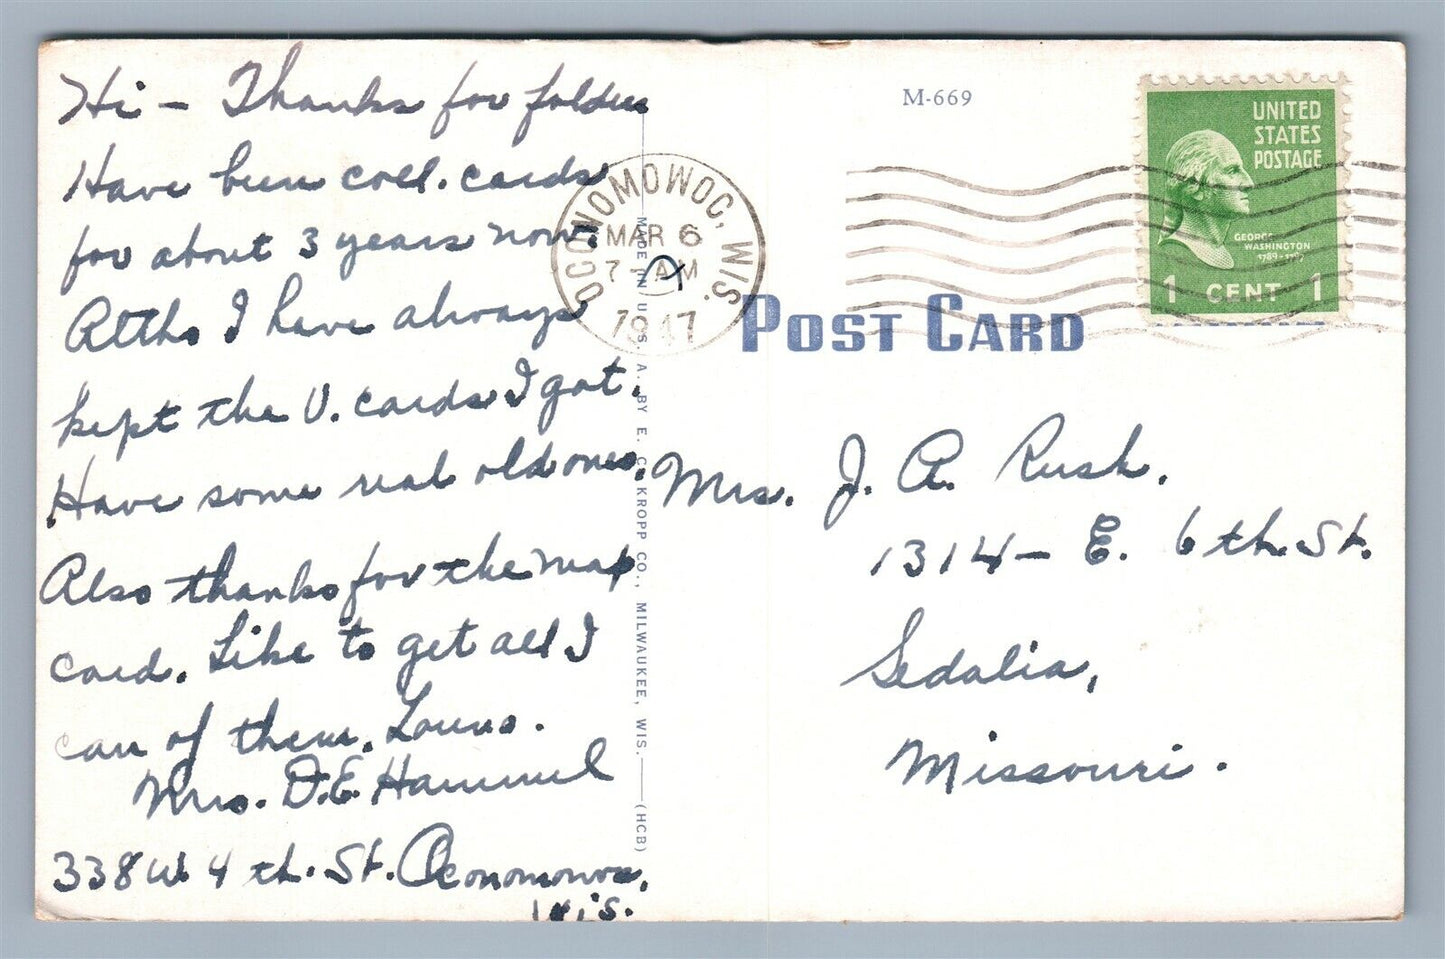 Hi – Thanks for folder
Have been coll. cards
for about 3 years now.
Altho I have always
kept the V. cards I got.
Have some real old ones.
Also thanks for the map
card. Like to get all I
can of them. Louns.
Mrs. D.E. Hammel
338 W. 4 th. St. Oconomowoc,
Wis.
MADE IN U.S.A. BY E. C. KROPP CO., MILWAUKEE, WIS. (HCB)
OCONOMOWOC, WIS.
MAR 6
7 – AM
1947
M-669
UNITED
STATES
POSTAGE
GEORGE
WASHINGTON
1789-1797
1 CENT 1
POST CARD
Mrs. J. A. Rush.
1314 – E. 6 th. St.
Sedalia,
Missouri.